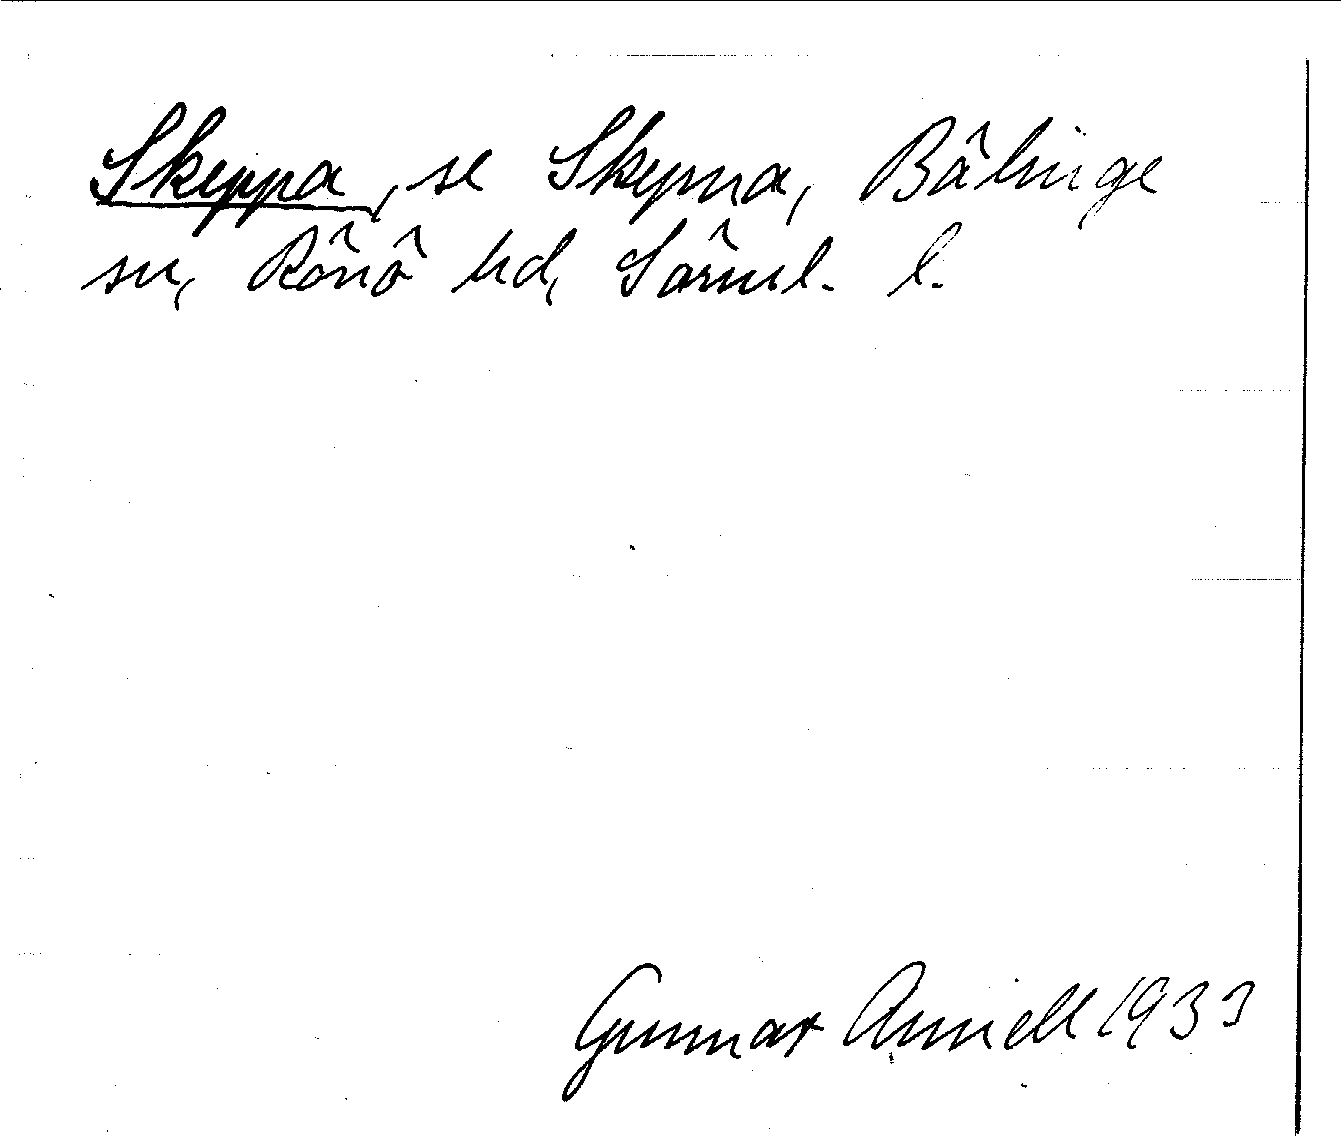 Skeppa, se Skepna, Bälinge
sn, Rönö hd, Sörml. l.
Gunnar Arnell 1933